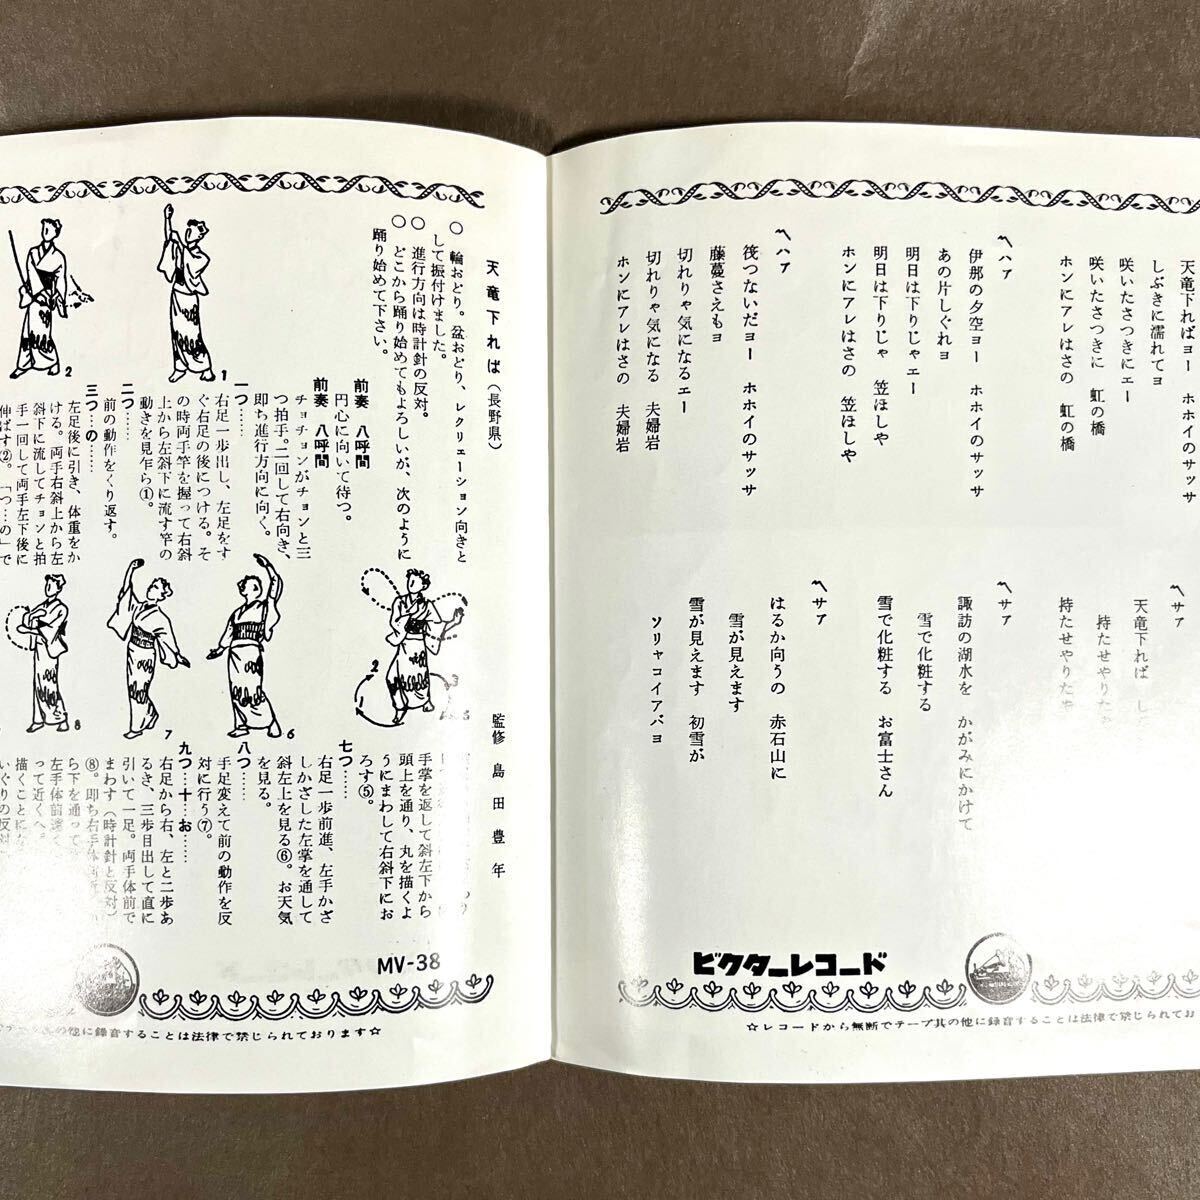 天竜下ればヨー　ホホイのサッサ
しぶきに濡れてヨ
咲いたさつきにエー
咲いたさつきに　虹の橋
ホンにアレはさの　虹の橋
〽ハア
伊那の夕空ヨー　ホホイのサッサ
あの片しぐれヨ
明日は下りじゃエー
明日は下りじゃ　笠ほしや
ホンにアレはさの　笠ほしや
〽ハア
筏つないだヨー　ホホイのサッサ
藤蔓さえもヨ
切れりゃ気になるエー
切れりゃ気になる　夫婦岩
ホンにアレはさの　夫婦岩
〽サア
天竜下れば
持たせやりたや
持たせやりたや
〽サア
諏訪の湖水を　かがみにかけて
雪で化粧する
雪で化粧する　お富士さん
〽サア
はるか向うの　赤石山に
雪が見えます
雪が見えます　初雪が
ソリャコイアバヨ
ビクターレコード
☆レコードから無断でテープ其の他に録音することは法律で禁じられてお
天竜下れば（長野県）
監修　島田豊年
○　輪おどり。盆おどり、レクリェーション向きと
して振付けました。
○　進行方向は時計針の反対。
○　どこから踊り始めてもよろしいが、次のように
踊り始めて下さい。
前奏　八呼間
円心に向いて待つ。
前奏　八呼間
チョチョンがチョンと三
つ拍手。二回して右向き、
即ち進行方向に向く。
一つ……
右足一歩出し、左足をす
ぐ右足の後につける。そ
の時両手竿を握って右斜
上から左斜下に流す竿の
動きを見乍ら①。
二つ……
前の動作をくり返す。
三つ…の……
左足後に引き、体重をか
ける。両手右斜上から左
斜下に流してチョンと拍
手一回して両手左下後に
伸ばす②。「つ…の」で
1
2
1
2
3
5
6
7
8
手掌を返して斜左下から
頭上を通り、丸を描くよ
うにまわして右斜下にお
ろす⑤。
七つ……
右足一歩前進、左手かざ
しかざした左掌を通して
斜左上を見る⑥。お天気
を見る。
八つ……
手足変えて前の動作を反
対に行う⑦。
九つ…十…お……
右足から右、左と二歩あ
るき、三歩目出して直に
引いて一足。両手体前で
まわす（時計針と反対）
⑧。即ち右手体
ら下を通って
左手体前
って近くへ
描くことにな
いぐりの反対
MV-38
其の他に録音することは法律で禁じられております☆